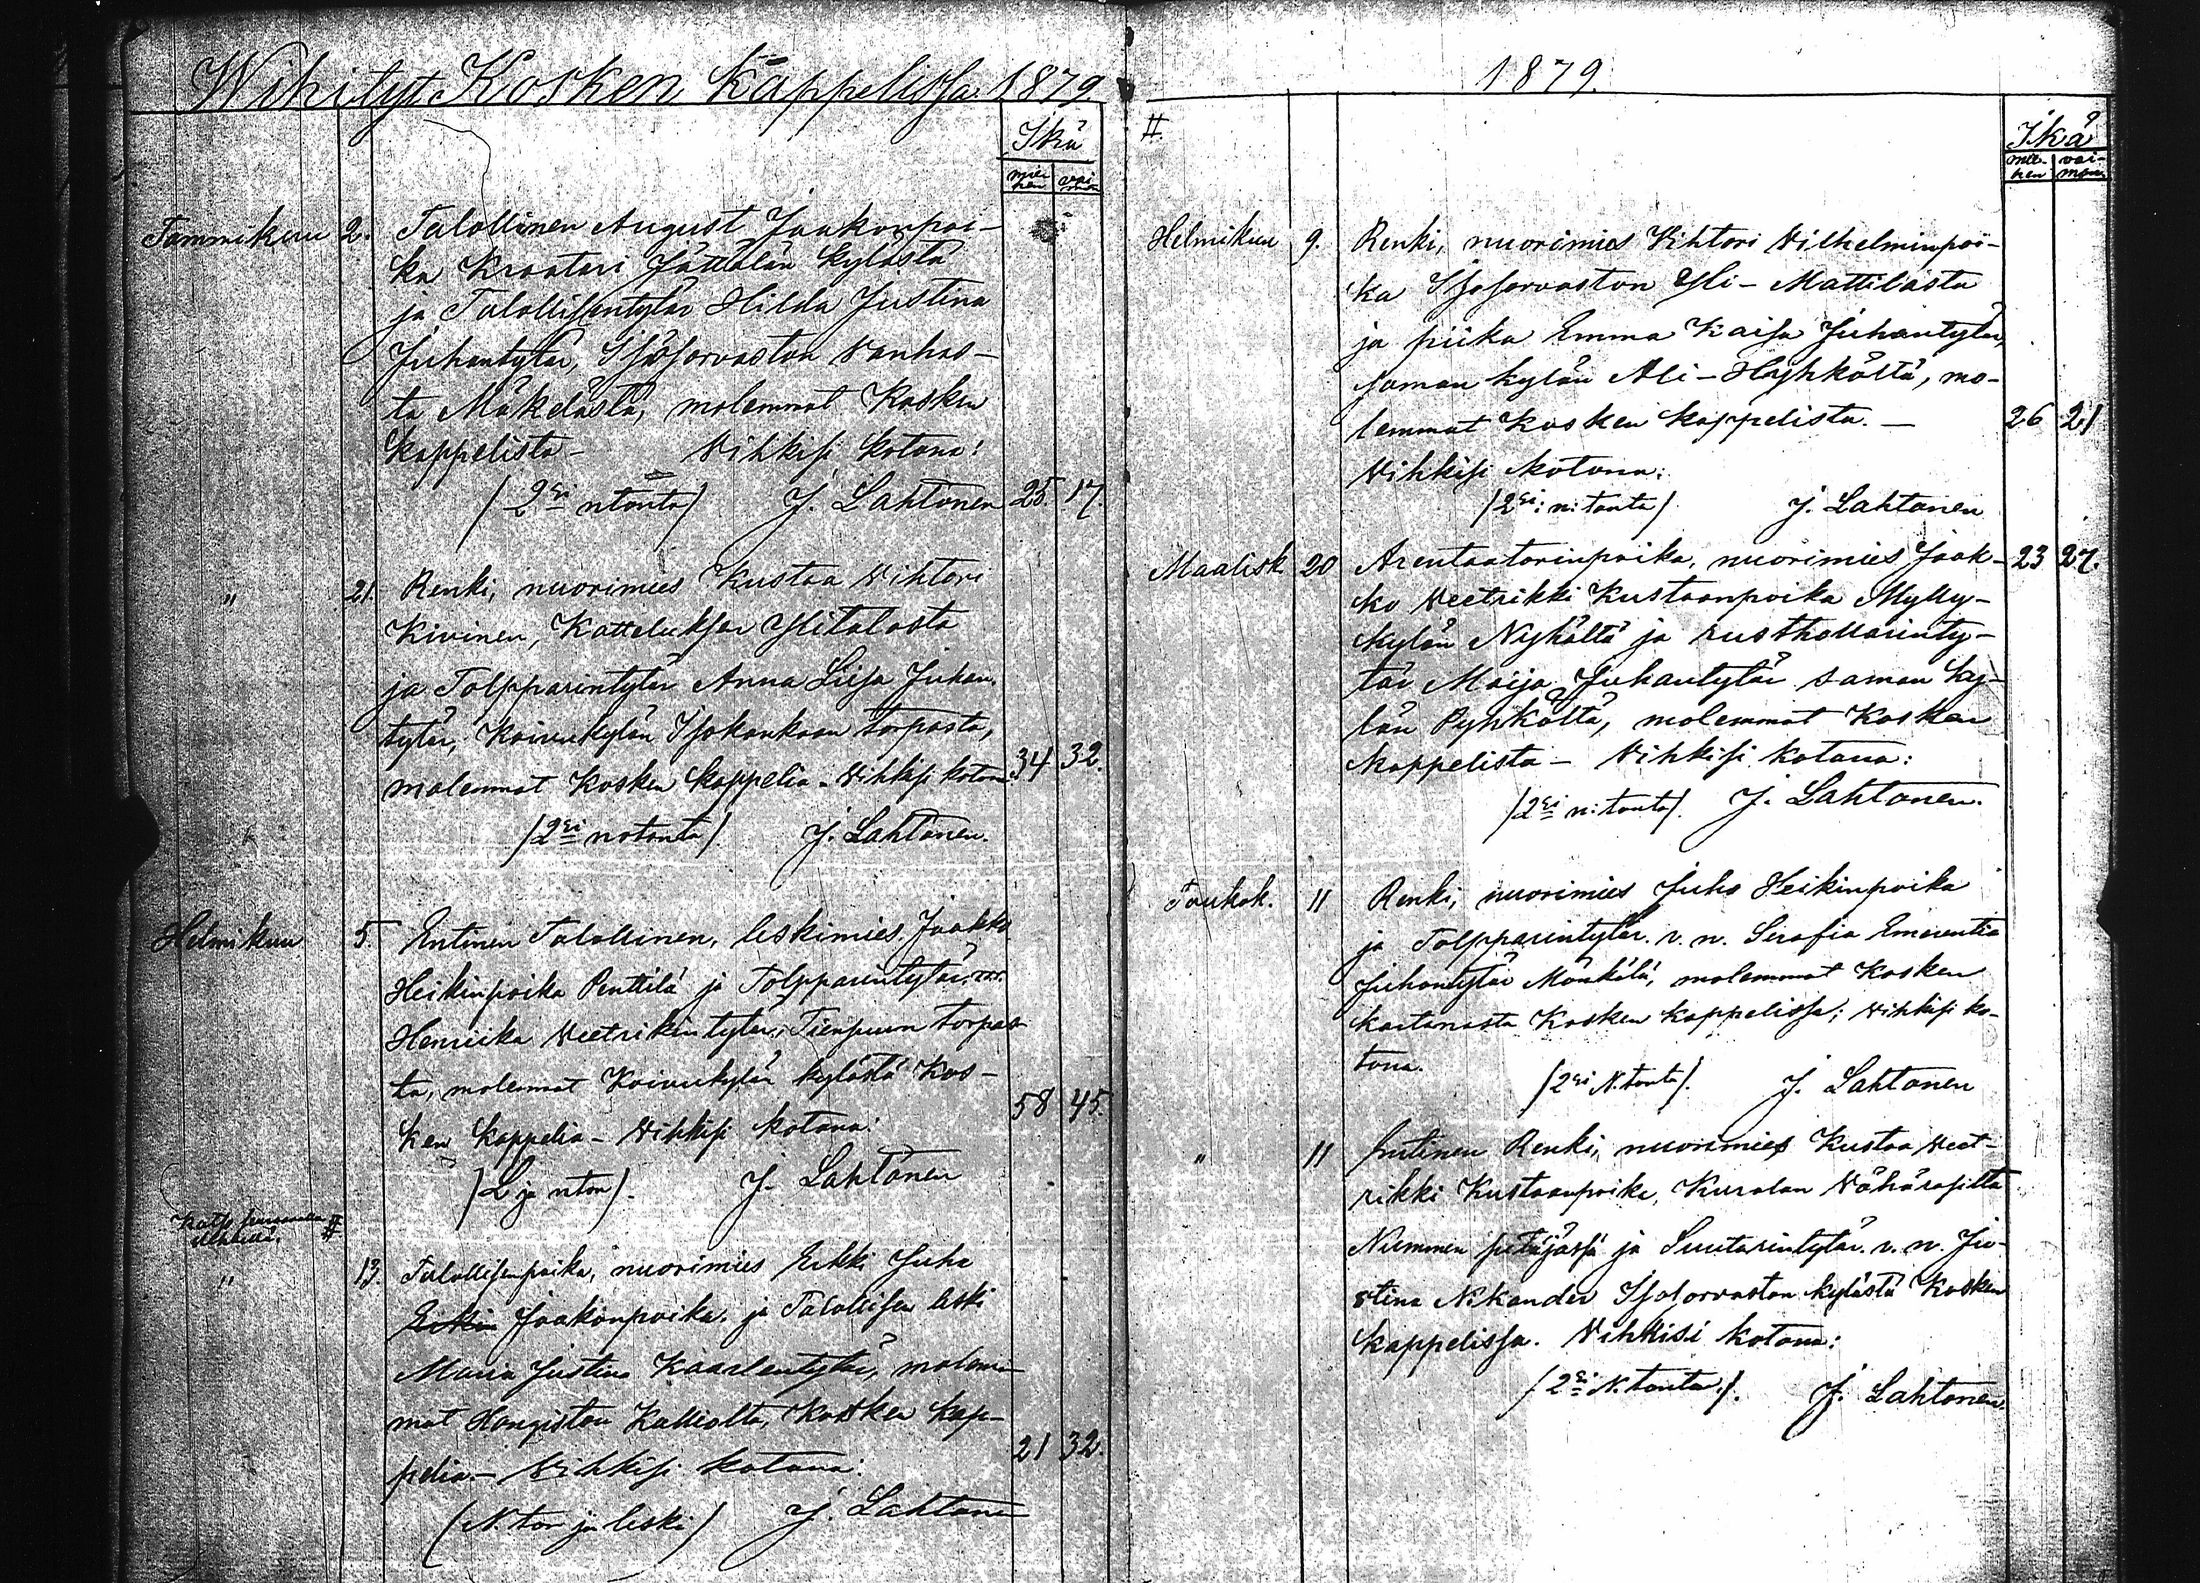 Wihityt Kosken Kappelissa 1879.
Ikä
miehen vaimon
Tammikuu 2. Talollinen August Jaakonpoi-
ka Kraatari Jättälän kylästä
ja Talollisentytär Hilda Justina
Juhantytär, Isosorvaston Vanhas-
ta Mäkelästä, molemmat Kosken
kappelista – Vihkisi kotona:
/2 ei ntonta/ J. Lahtonen 25. 17.
" 21. Renki, nuorimies Kustaa Vihtori
Kivinen, Katteluksen Ylitalosta
ja Tolpparintytär Anna Liisa Juhan-
tytär, Koivukylän Isokankaan torpasta,
molemmat Kosken kappelia – Vihkisi kotona: 34 32.
/2 ei notonta/. J. Lahtonen.
Helmikuu 5. Entinen Talollinen, leskimies Jaakko
Heikinpoika Penttilä ja Tolpparintytär,
Henriika Veetrikintytär, Tienpuun torpas-
ta, molemmat Koivukylän kylästä Kos-
ken kappelia – Vihkisi kotona: 58 45.
/L ja nton/. J. Lahtonen
Katso II
" 13. Talollisenpoika, nuorimies Erkki Juha
Erkin Jaakonpoika. ja Talollisen leski
Maria Justina Kaarlentytär, molem-
mat Hongiston Kalliolta, Kosken kap-
pelia – Vihkisi kotona: 21 32.
(N. ton ja leski) J. Lahtonen
1879.
II
Ikä
miehen vaimon
Helmikuu 9. Renki, nuorimies Vihtori Vilhelminpoi-
ka Isosorvaston Yli-Mattilasta
ja piika Emma Kaisa Juhantytär,
saman kylän Ali-Hyhkältä, mo-
lemmat Kosken kappelista. – 26 21
Vihkisi kotona:
/2 ei: n: tonta/ J. Lahtonen
Maalisk. 20 Arentaatorinpoika, nuorimies Jaak- 23 27.
ko Veetrikki Kustaanpoika Mylly-
kylän Nyhältä ja rusthollarinty-
tär Maija Juhantytär saman ky-
län Pyhkältä, molemmat Kosken
kappelista – Vihkisi kotona:
/2 ei n: tonta/. J. Lahtonen.
Toukok. 11 Renki, nuorimies Juho Heikinpoika
ja Tolpparintytär. v. n. Serafia Emerentia
Juhontytär Mönkälä, molemmat Kosken
kartanosta Kosken kappelissa; Vihkisi ko-
tona.
/2 ei N. tonta/. J. Lahtonen
" 11 Entinen Renki, nuorimies Kustaa Veet-
rikki Kustaanpoika, Kuralan
Nummen ja Suutarintytär. v. n. Ju-
stina Nikander Isosorvaston kylästä Kosken
kappelissa. Vihkisi kotona:
/2 ei N. tonta/. J. Lahtonen.